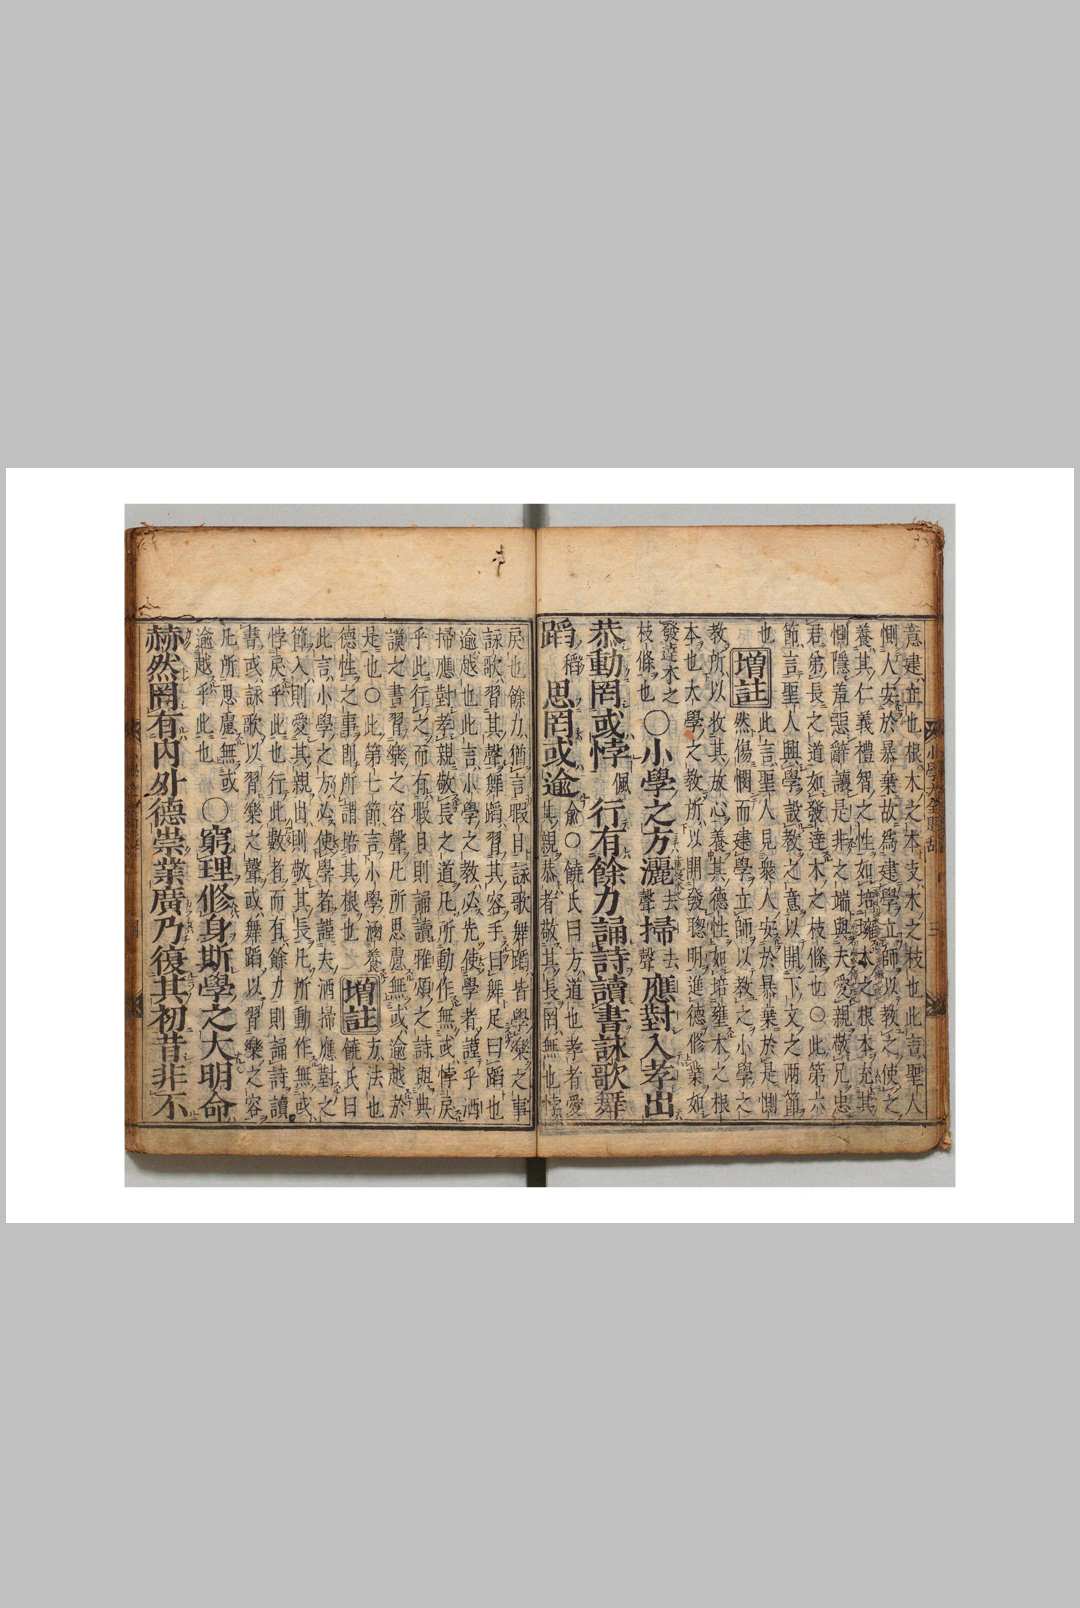 意建立也根木之本支木之枝也此言聖人
惻人安於暴棄故爲建學立師以教之使之
養其仁義禮智之性如培壅木之根本充其
惻隱羞惡辭讓是非之端與夫愛親敬兄忠
君弟長之道如發達木之枝條也○此第六
節言聖人興學設教之意以開下文之兩節
也
增註
此言聖人見衆人安於暴棄於是惻
然傷憫而建學立師以教之小學之
教所以收其放心養其德性如培壅木之根
本也大學之教所以開發聰明進德修業如
發達木之枝條也○小學之方灑去聲掃去聲應對入孝出
恭動罔或悖佩行有餘力誦詩讀書詠歌舞
蹈稻思罔或逾兪○饒氏曰方道也孝者愛其親恭者敬其長罔無也悖
戾也餘力猶言暇日詠歌舞蹈皆學樂之事
詠歌習其聲舞蹈習其容手曰舞足曰蹈也
逾越也此言小學之教必先使學者謹乎洒
掃應對孝親敬長之道凡所動作無或悖戾
乎此行之而有暇日則誦讀雅頌之詩與典
謨之書習樂之容聲凡所思慮無或逾越於
是也○此第七節言小學涵養
德性之事即所謂培其根也
增註
方法也
饒氏曰
此言小學之方必使學者謹夫洒掃應對之
節入則愛其親出則敬其長凡所動作無或
悖戾乎此也行此數者而有餘力則誦詩讀
書或詠歌以習樂之聲或舞蹈以習樂之容
凡所思慮無或
逾越乎此也○窮理修身斯學之大明命
赫然罔有內外德崇業廣乃復其初昔非不